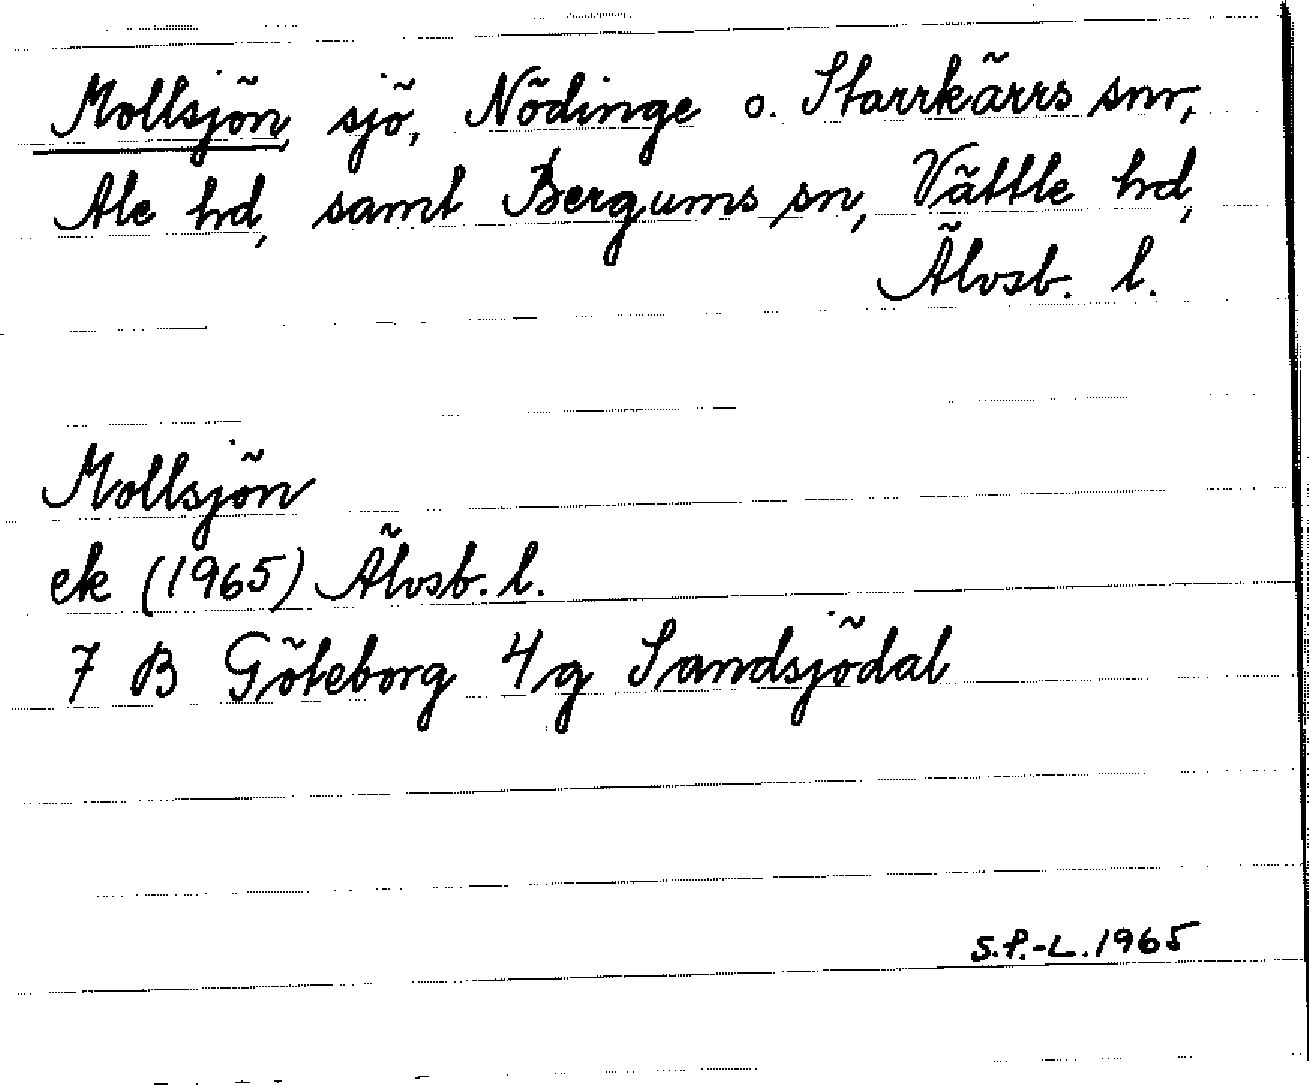 Mollsjön, sjö, Nödinge o. Starrkärrs snr,
Ale hd, samt Bergums sn, Vättle hd,
Älvsb. l.
Mollsjön
ek (1965) Älvsb. l.
7 B Göteborg 4g Sandsjödal
S.P.-L. 1965